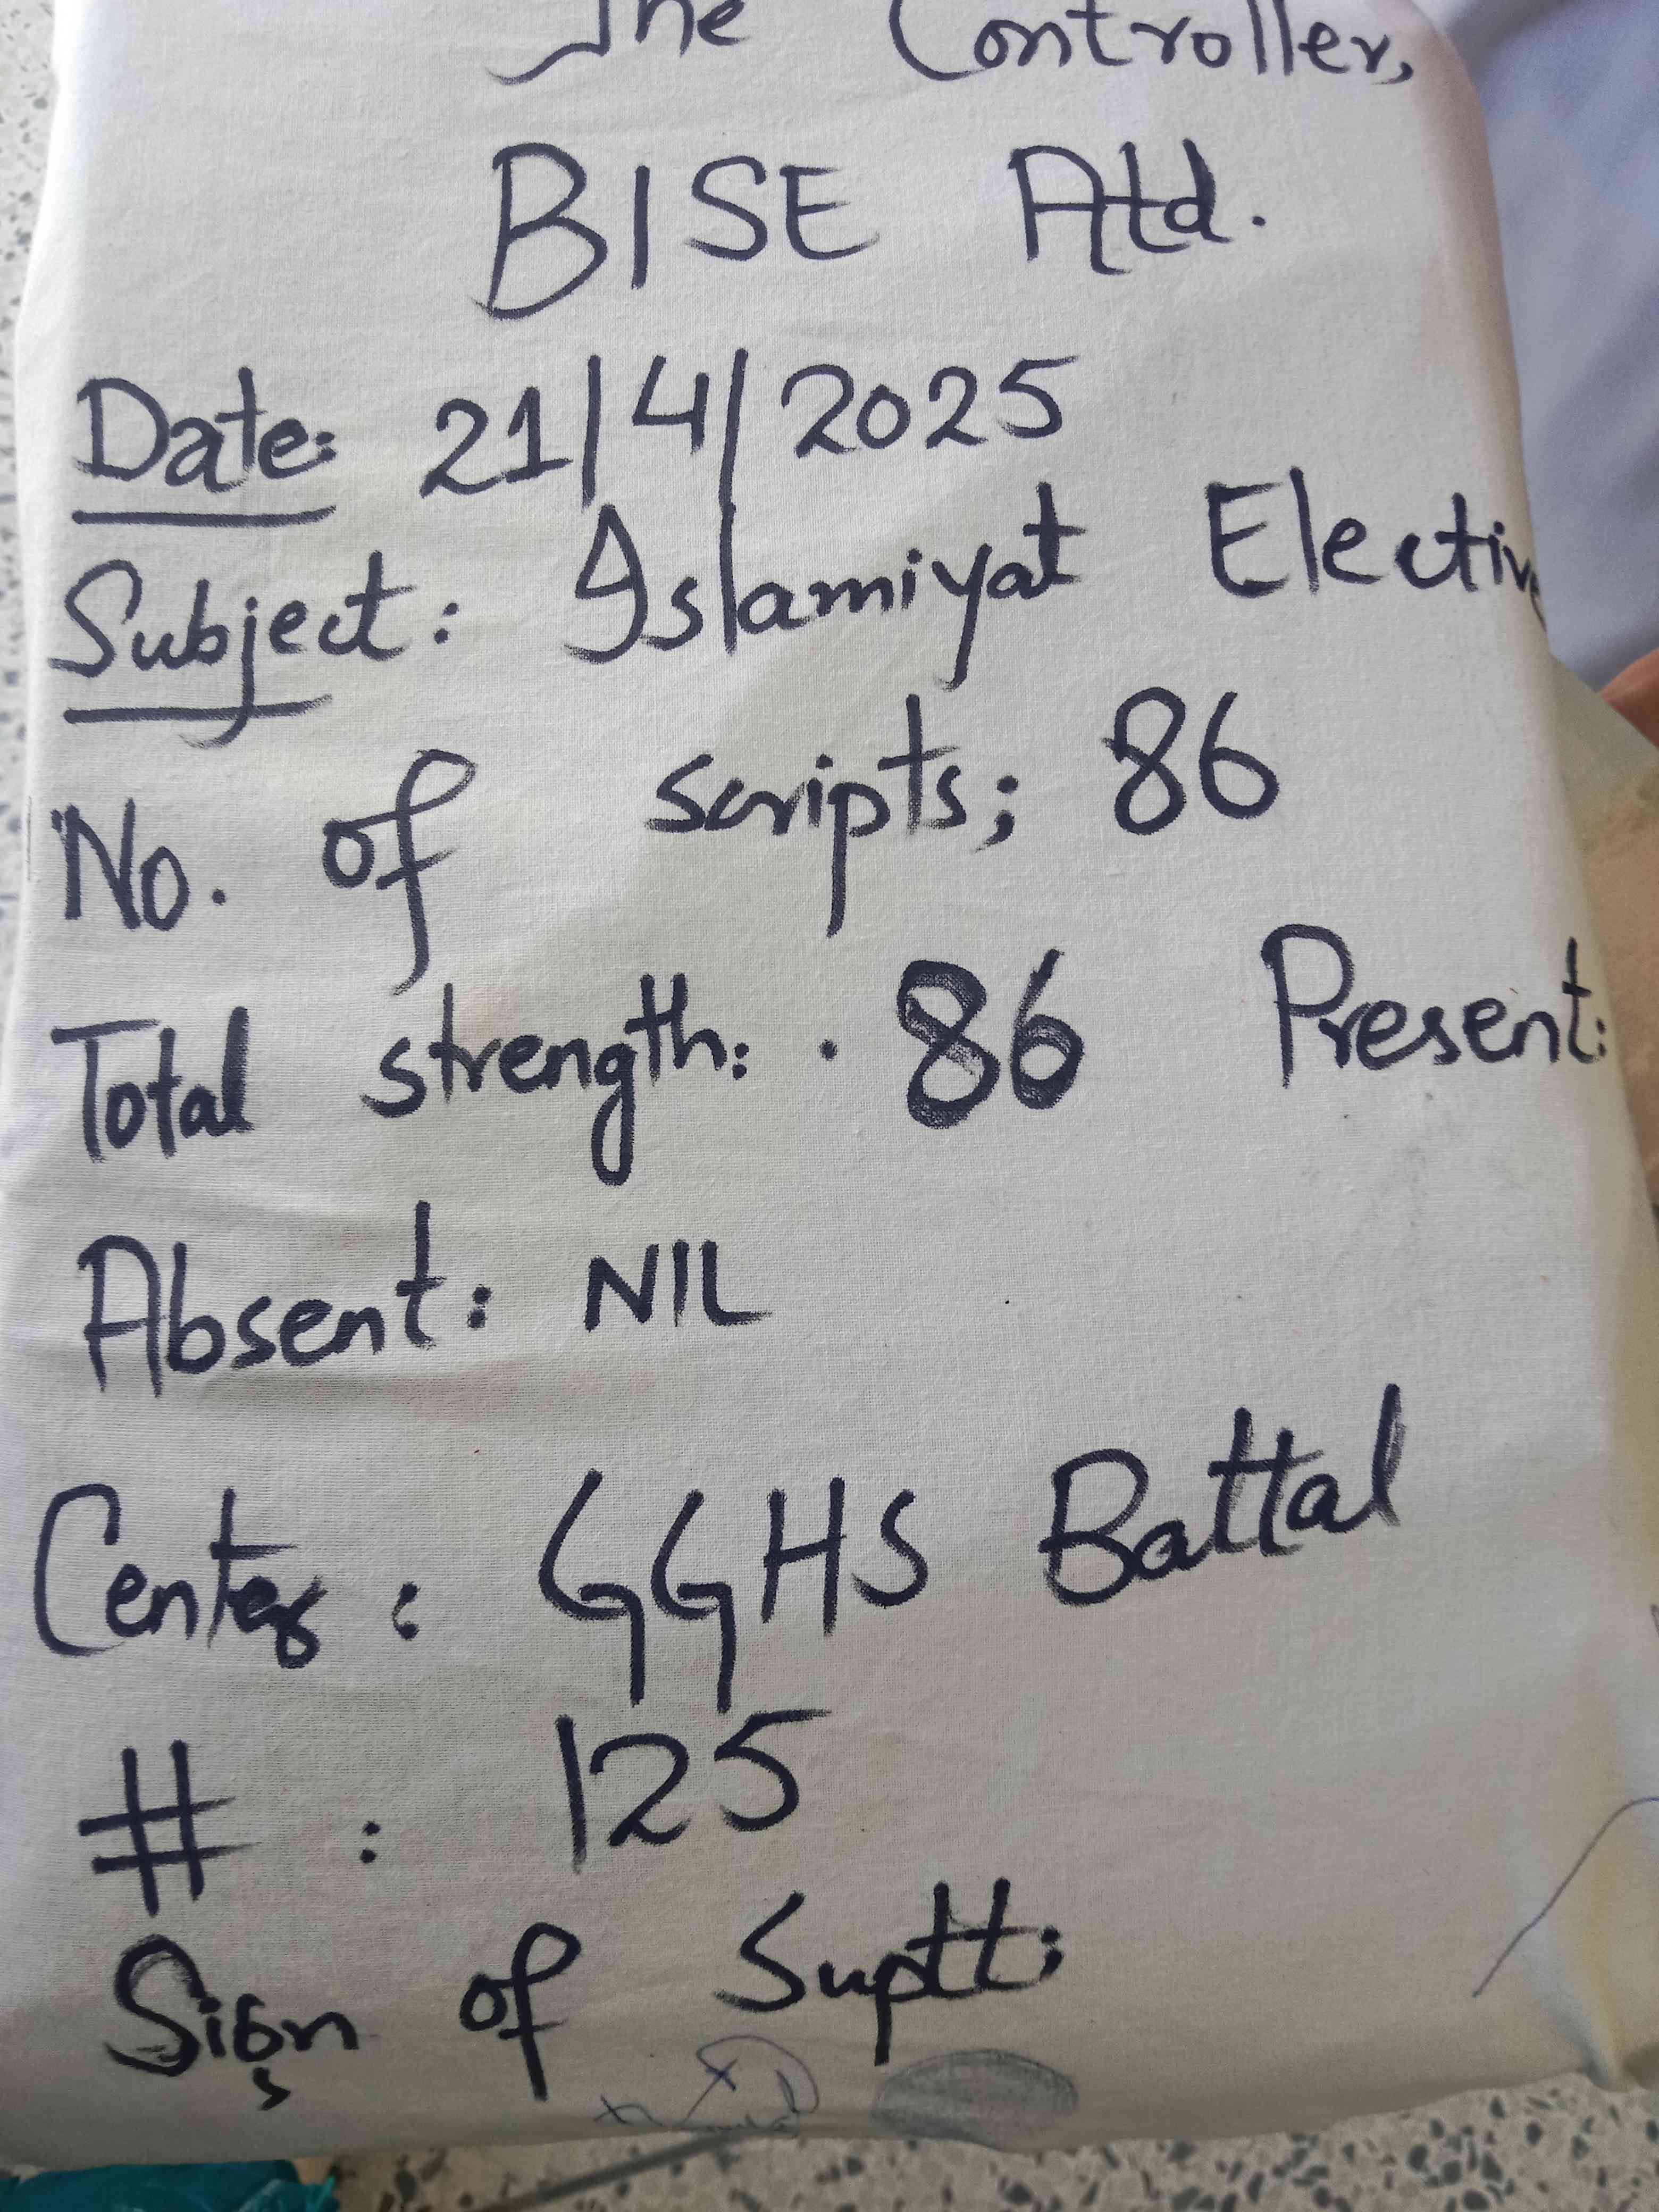 The Controller,
BISE Atd.
Date: 21/4/2025
Subject: Islamiyat Elective
No. of scripts; 86
Total strength: . 86 Present:
Absent: NIL
Center : GGHS Battal
# : 125
Sign of Suptt: